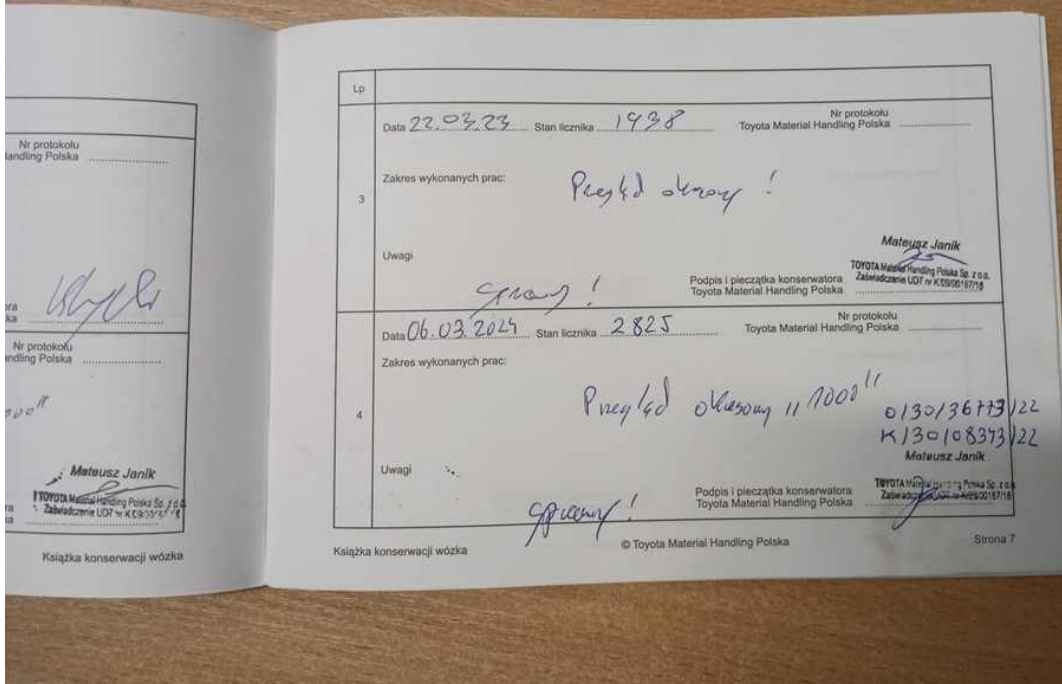 Nr protokołu
Handling Polska
Nr protokołu
Mateusz Janik
TOYOTA Material Handling Polska Sp. z o.o.
Zaświadczenie UDT nr
Książka konserwacji wózka
Lp
Data 22.03.23 Stan licznika 1938 Nr protokołu
Toyota Material Handling Polska
3
Zakres wykonanych prac:
Przegląd okresowy !
Uwagi
Sprawny !
Mateusz Janik
TOYOTA Material Handling Polska Sp. z o.o.
Zaświadczenie UDT nr K/09/00167/18
Podpis i pieczątka konserwatora
Toyota Material Handling Polska
4
Data 06.03.2024 Stan licznika 2825 Nr protokołu
Toyota Material Handling Polska
Zakres wykonanych prac:
Przegląd okresowy "1000"
0/30/36773/22
K/30/08373/22
Uwagi
Sprawny !
Mateusz Janik
TOYOTA Material Handling Polska Sp. z o.o.
Podpis i pieczątka konserwatora
Toyota Material Handling Polska
Książka konserwacji wózka
© Toyota Material Handling Polska
Strona 7